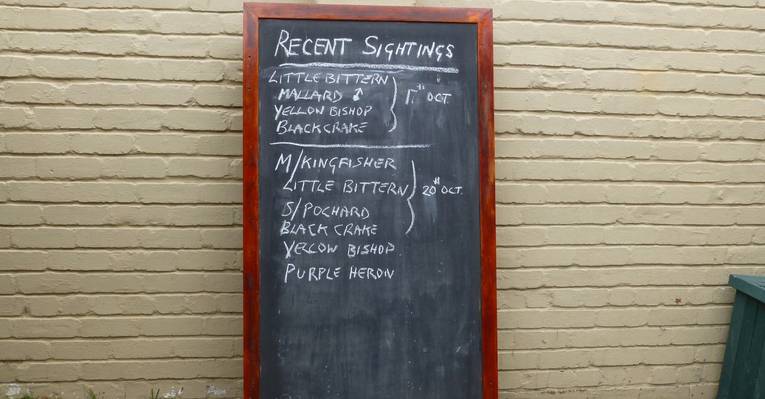 RECENT SIGHTINGS
LITTLE BITTERN
MALLARD
YELLOW BISHOP
BLACKCRAKE
OCT.
M/KINGFISHER
LITTLE BITTERN
20th OCT.
S/POCHARD
BLACK CRAKE
YELLOW BISHOP
PURPLE HERON